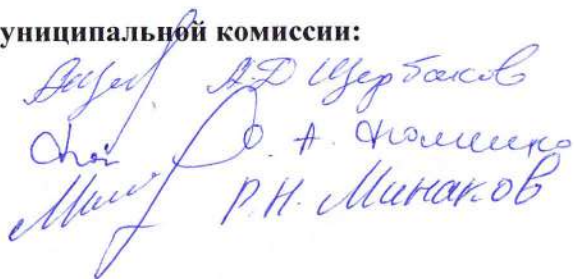 униципальной комиссии:
А.Д Щербаков
О. А.
Р.Н. Минаков